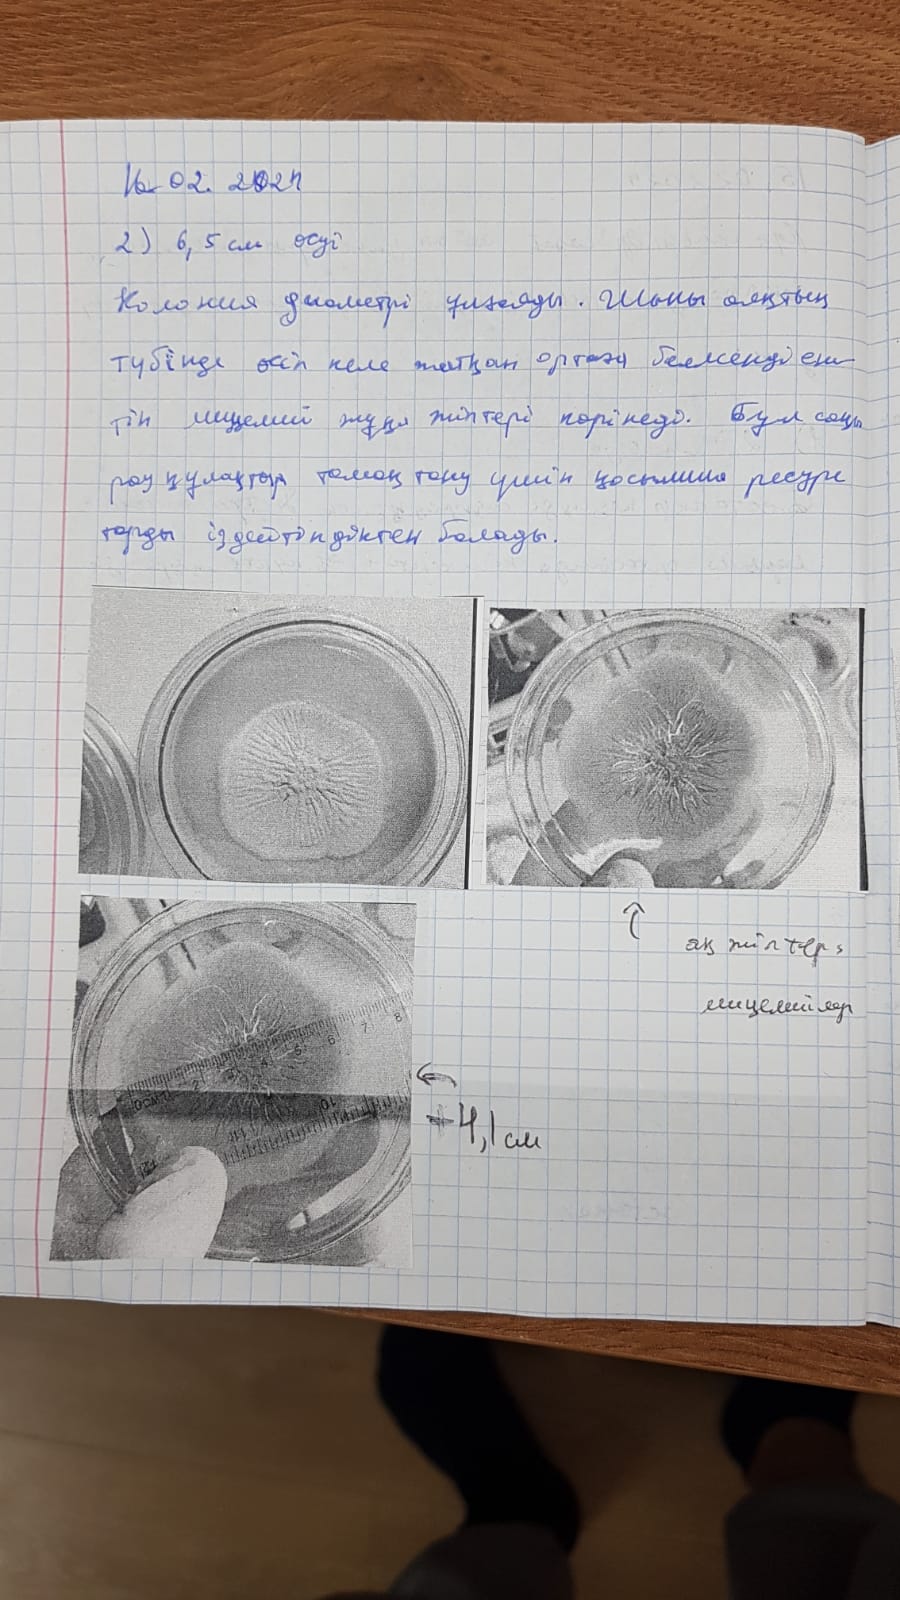 16.02.2024
2) 6,5 см өсуі
Колония диаметрі ұлғаяды. Шыны аяқтың
түбінде өсіп келе жатқан ортаға белсенді ен
тін мицелий жұқа жіптері көрінеді. Бұл саңы
рауқұлақтар тамақтану үшін қосымша ресурс
тарды іздейтіндіктен болады.
ақ жіптер
мицелийлер
4,1 см
0см 1 2 3 4 5 6 7 8
10